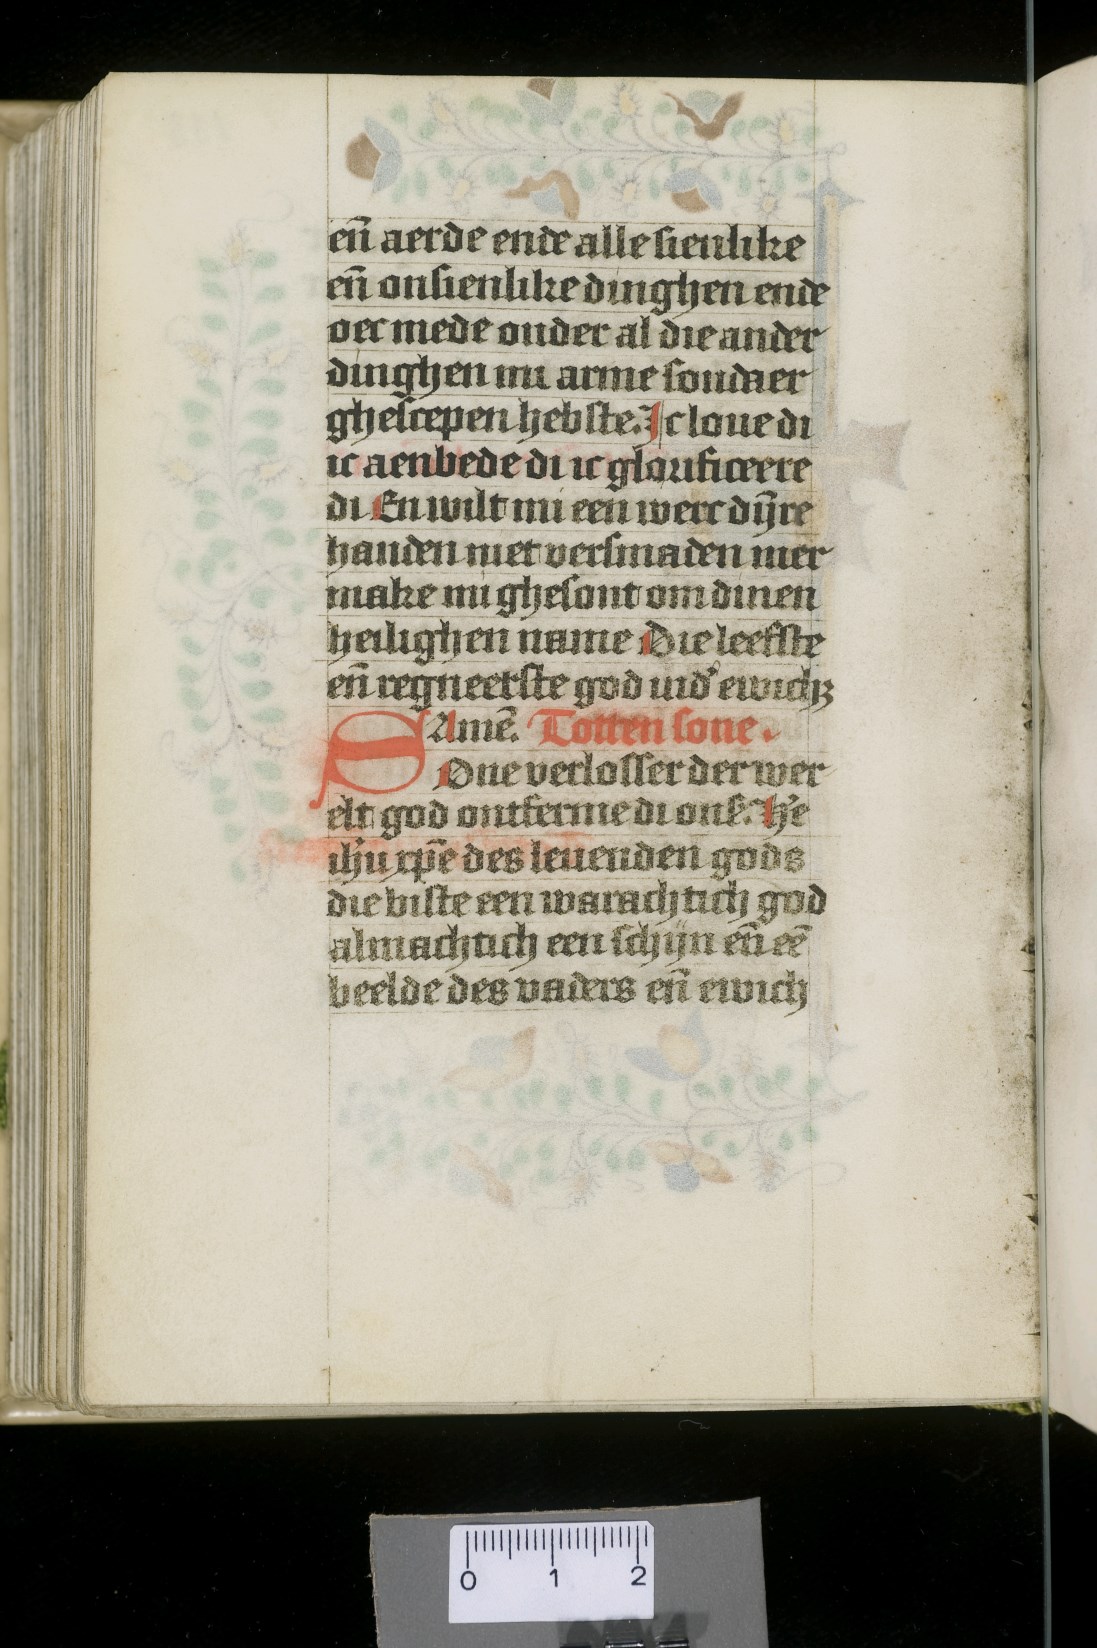 en̄ aerde ende alle sienlike
en̄ onsienlike dinghen ende
oec mede onder al die ander
dinghen mi arme sondaer
ghescepen hebste. Ic loue di
ic aenbede di ic glorificeere
di En wilt mi een werc dijnre
handen niet versmaden mer
make mi ghesont om dinen
heilighen name Die leefste
en̄ regneerste god in dˀ ewichꝫ
Amē. Totten sone.
SOne verlosser der wer
elt god ontferme di onſ. He
ihū xpē des leuenden gods
die biste een warachtich god
almachtich een schijn en̄ eē
beelde des vaders en̄ ewich
0 1 2